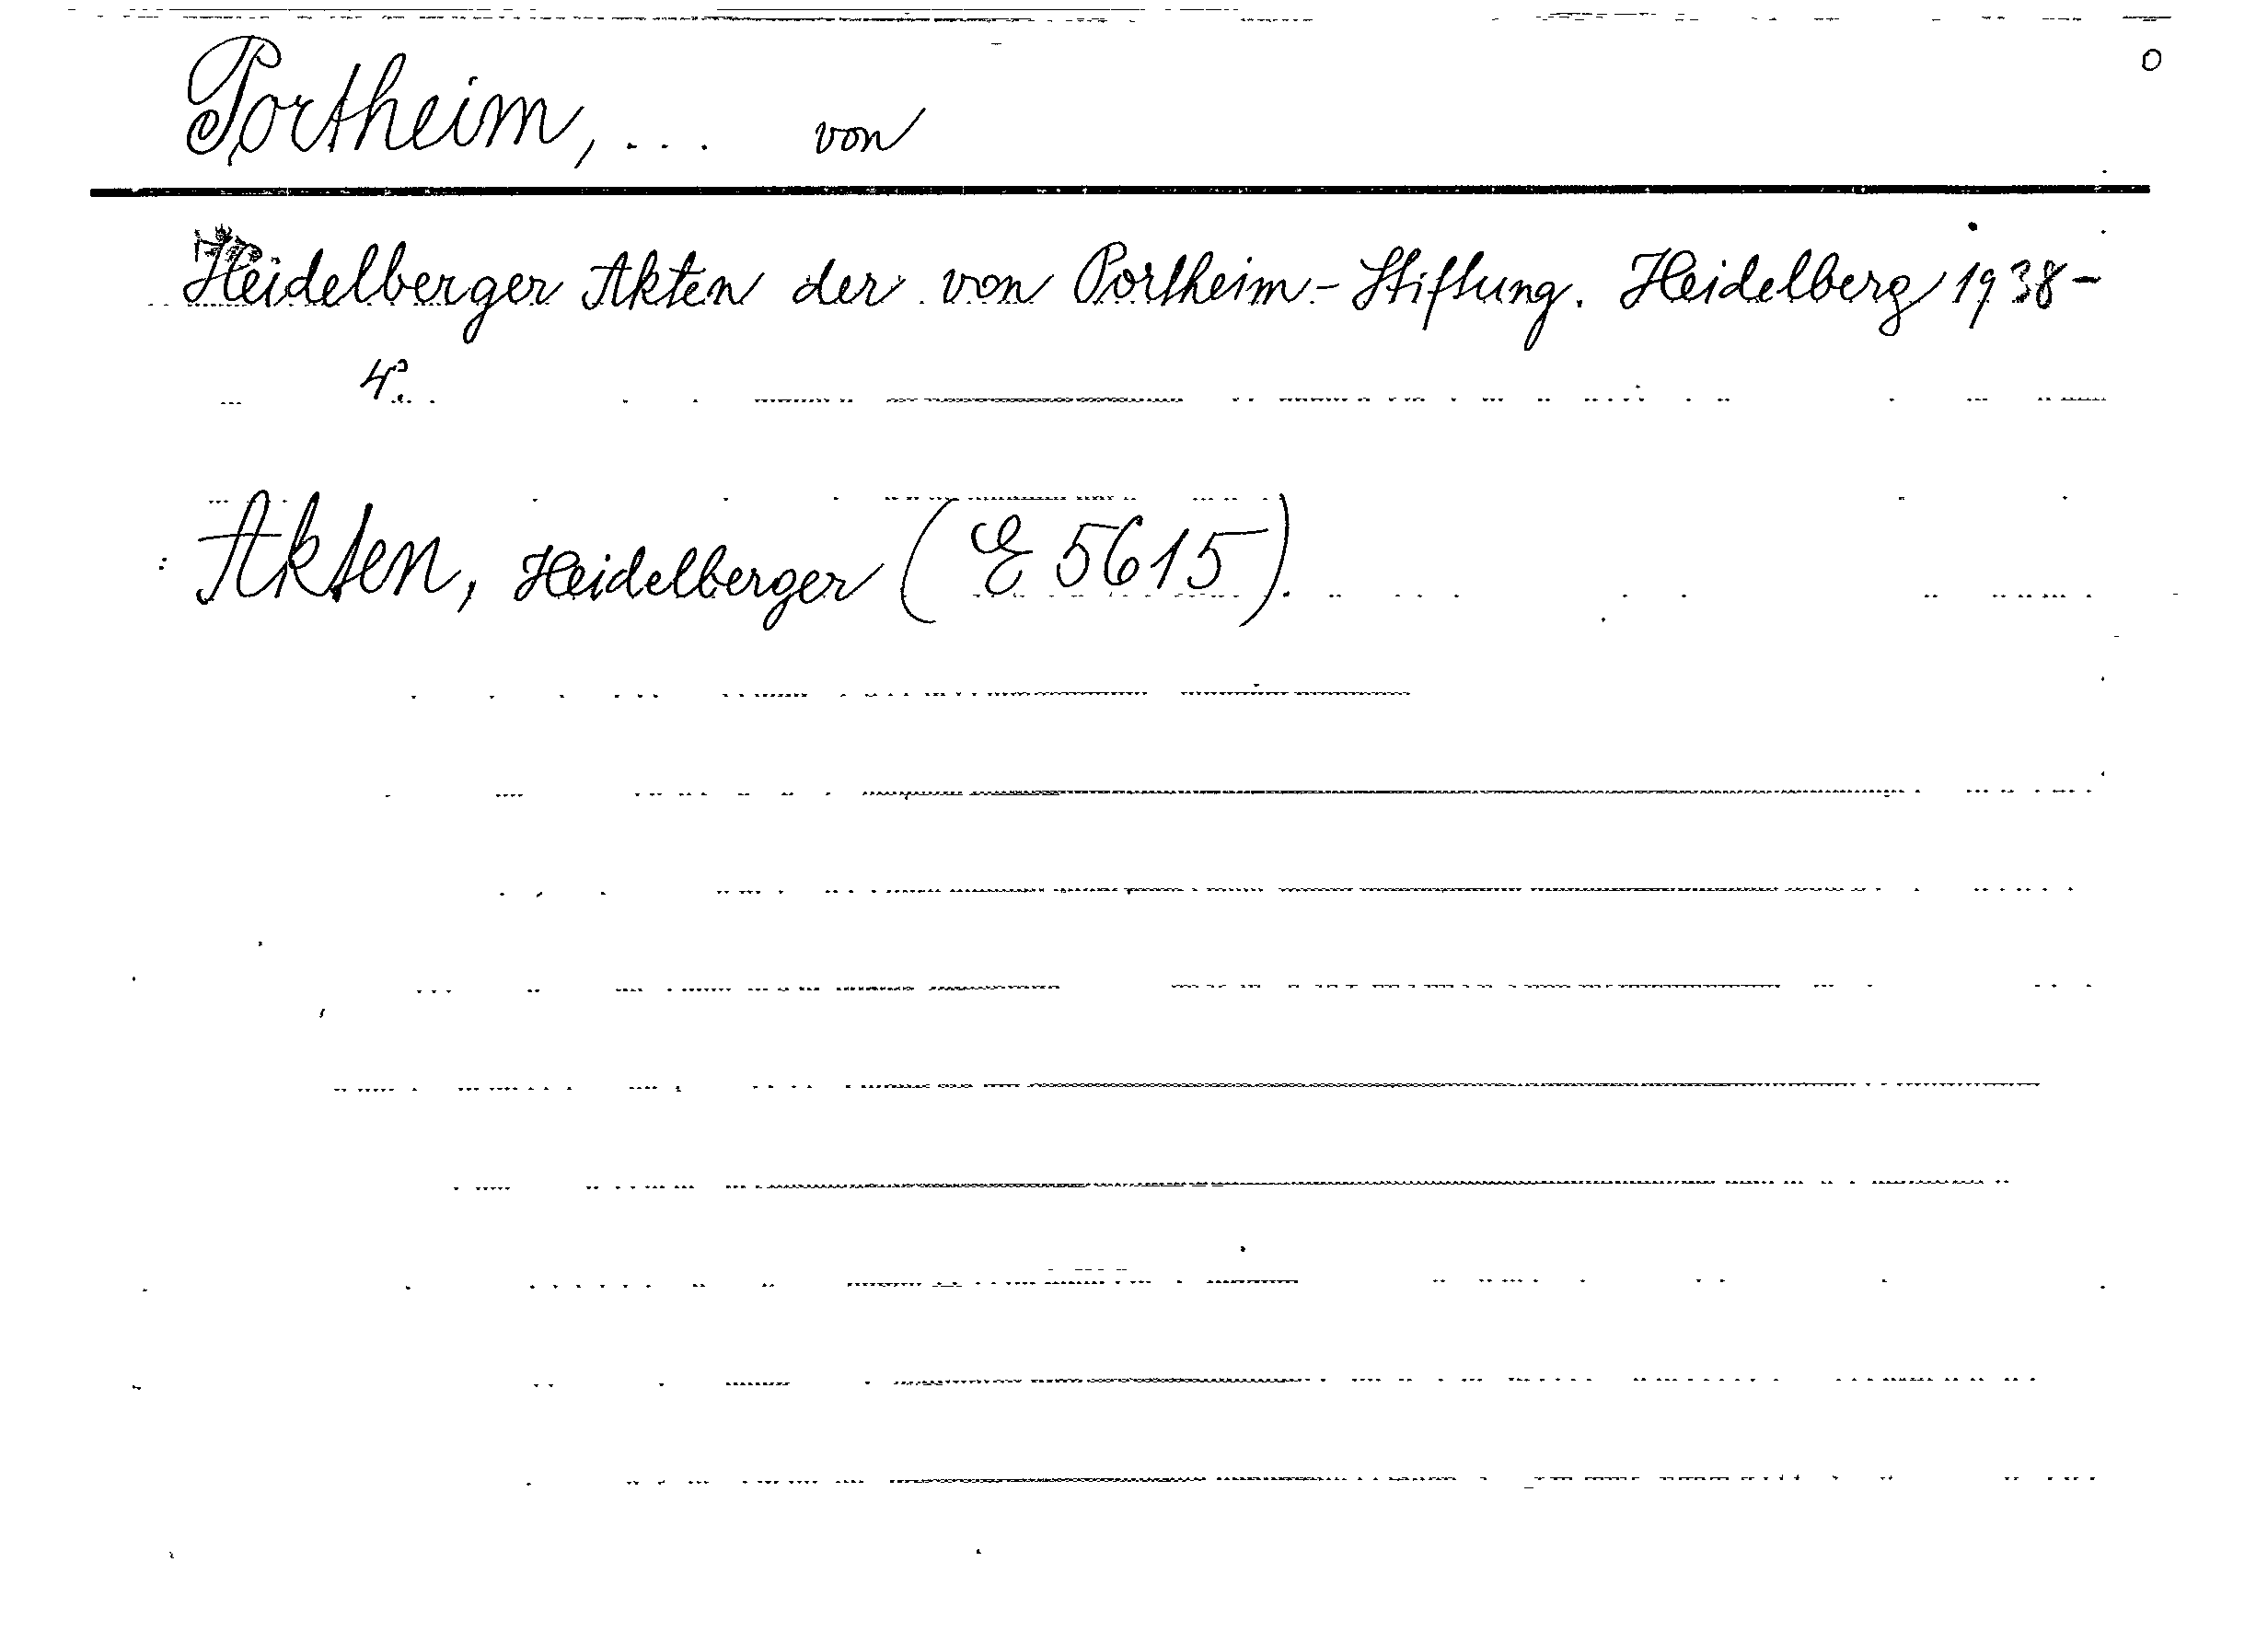 o
Portheim, ... von
Heidelberger Akten der von Portheim-Stiftung. Heidelberg 1938-
4°.
Akten, Heidelberger (E 5615).